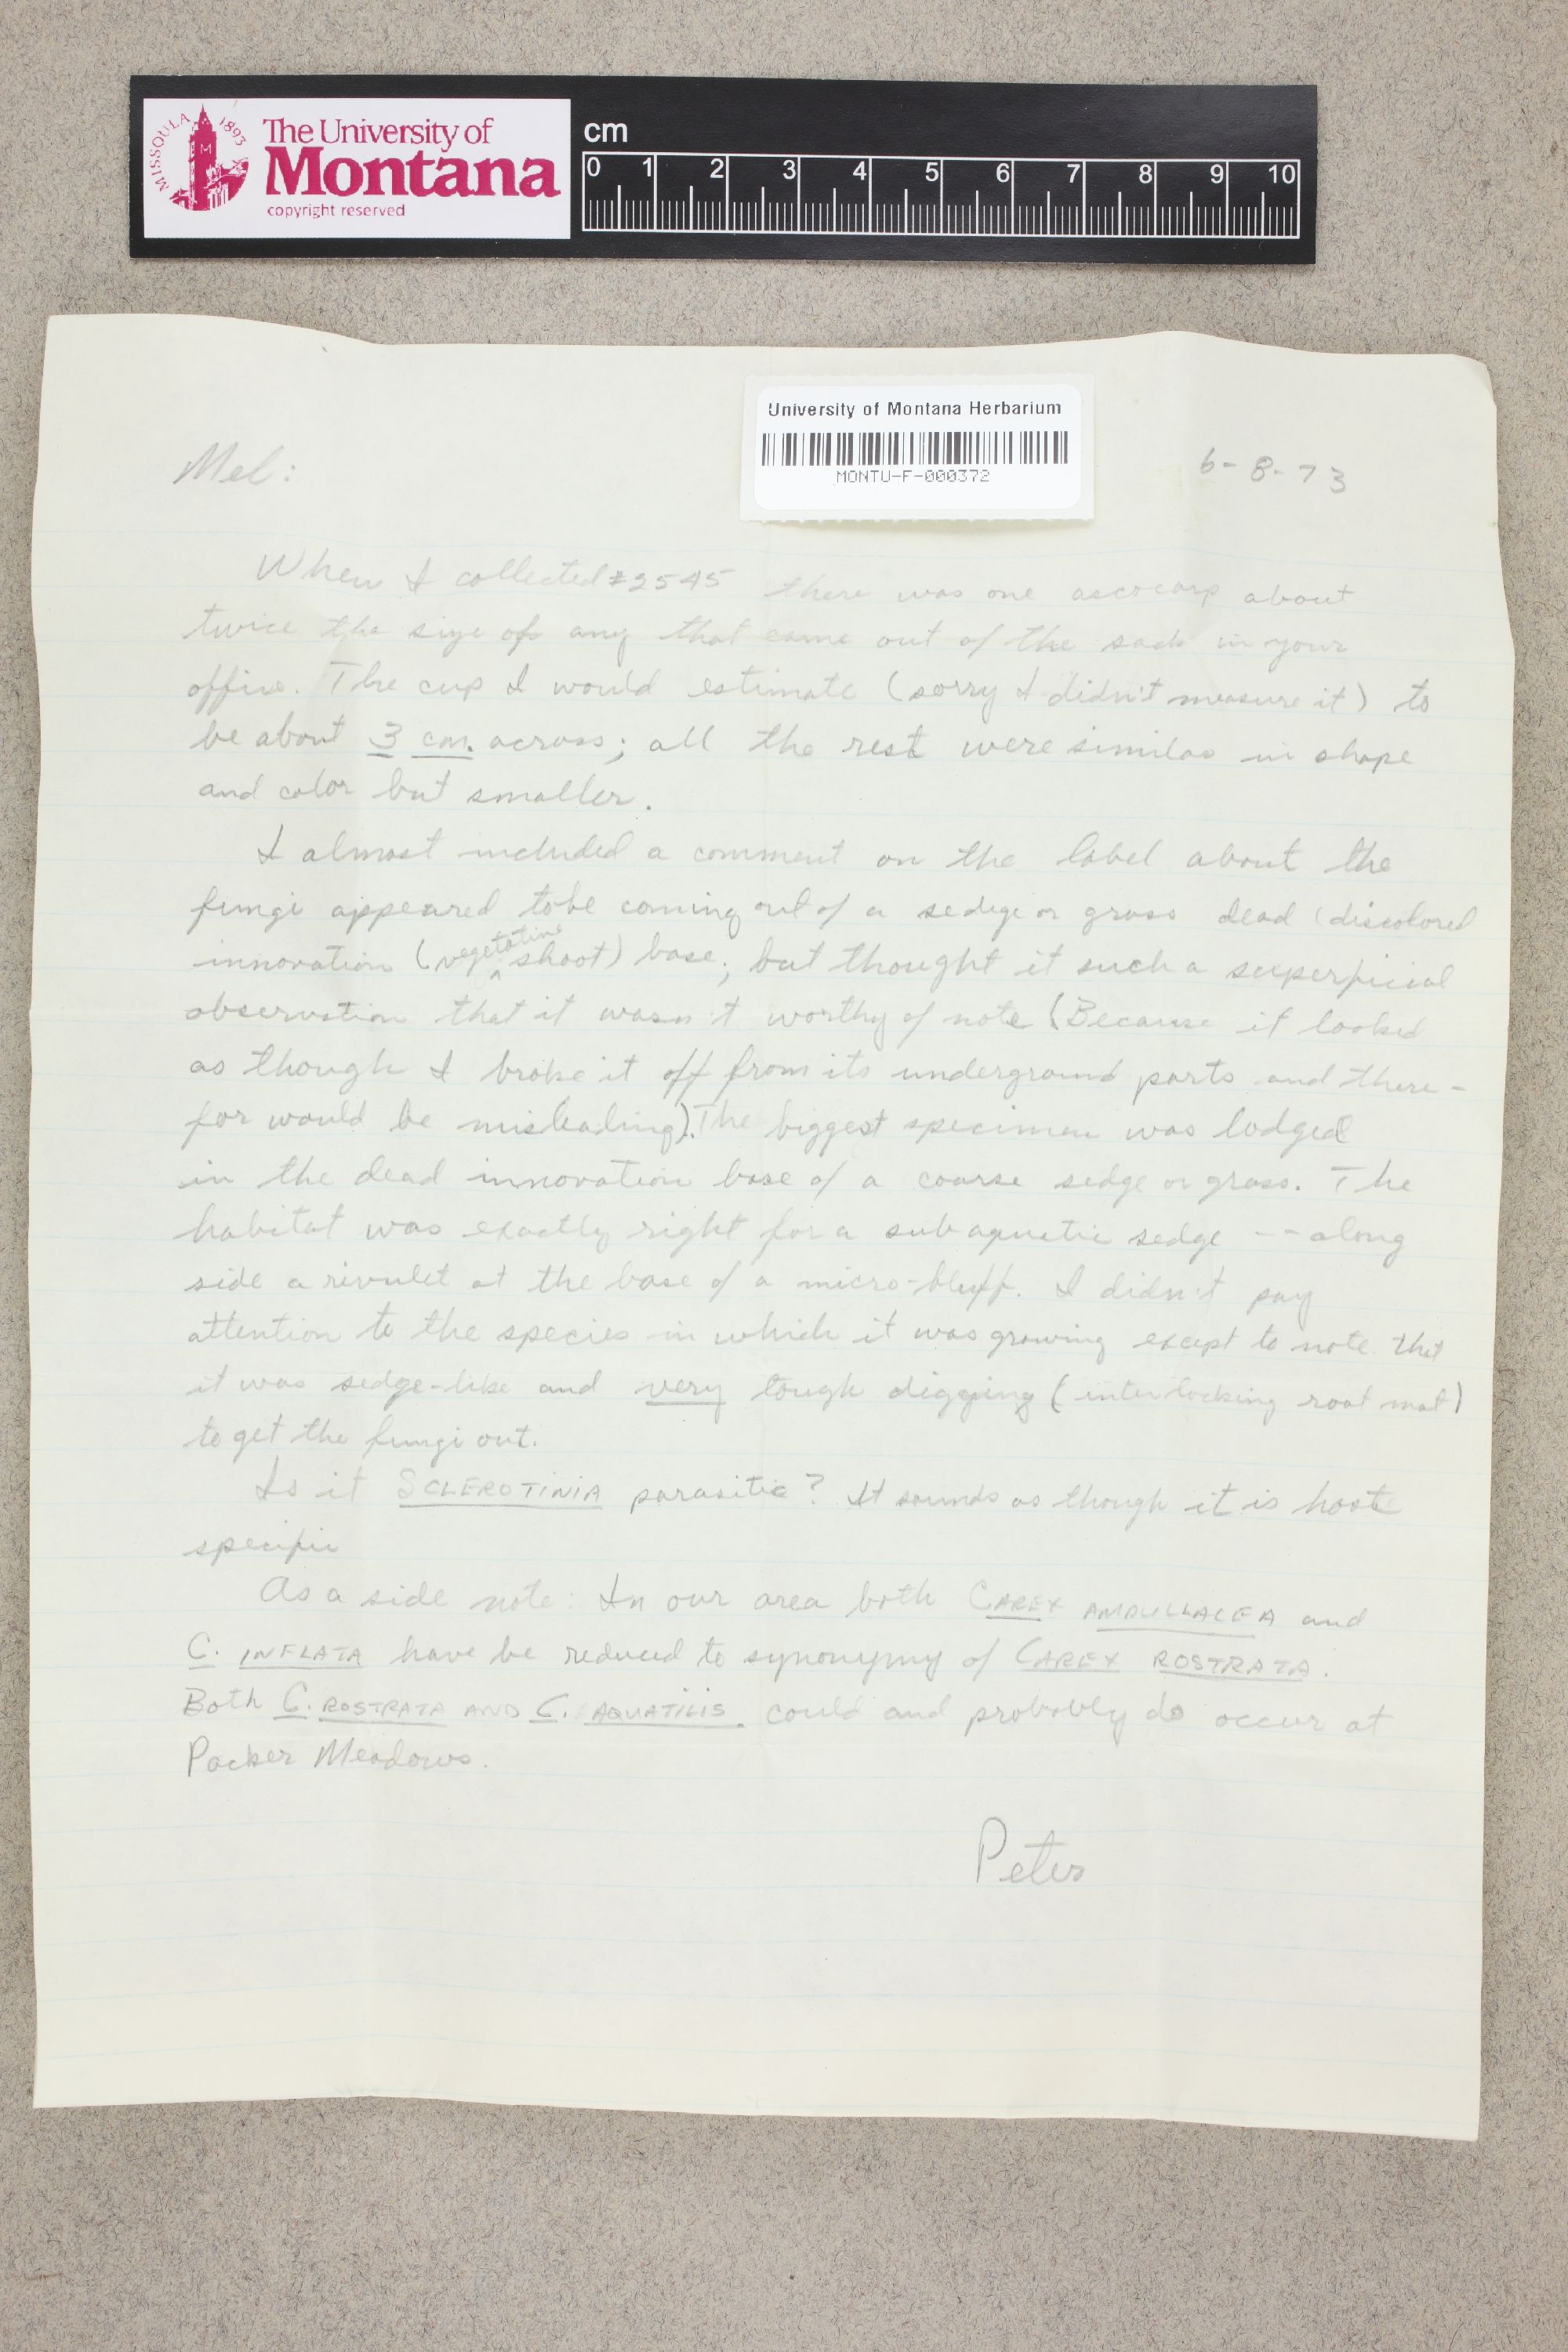 MISSOULA 1893
M
The University of
Montana
copyright reserved
cm
0 1 2 3 4 5 6 7 8 9 10
University of Montana Herbarium
MONTU-F-000372
Mel:
6-8-73
When I collected #2545 there was one ascocarp about
twice the size of any that came out of the sack in your
office. The cup I would estimate (sorry I didn't measure it) to
be about 3 cm. across; all the rest were similar in shape
and color but smaller.
I almost included a comment on the label about the
fungi appeared to be coming out of a sedge or grass dead (discolored
innovation (vegetative shoot) base; but thought it such a superficial
observation that it wasn't worthy of note (Because it looked
as though I broke it off from its underground parts and there-
for would be misleading). The biggest specimen was lodged
in the dead innovation base of a coarse sedge or grass. The
habitat was exactly right for a subaquatic sedge -- along
side a rivulet at the base of a micro-bluff. I didn't pay
attention to the species in which it was growing except to note that
it was sedge-like and very tough digging (interlocking root mat)
to get the fungi out.
Is it SCLEROTINIA parasitic? It sounds as though it is host
specific
As a side note: In our area both CAREX AMPULLACEA and
C. INFLATA have be reduced to synonymy of CAREX ROSTRATA.
Both C. ROSTRATA AND C. AQUATILIS could and probably do occur at
Packer Meadows.
Peter